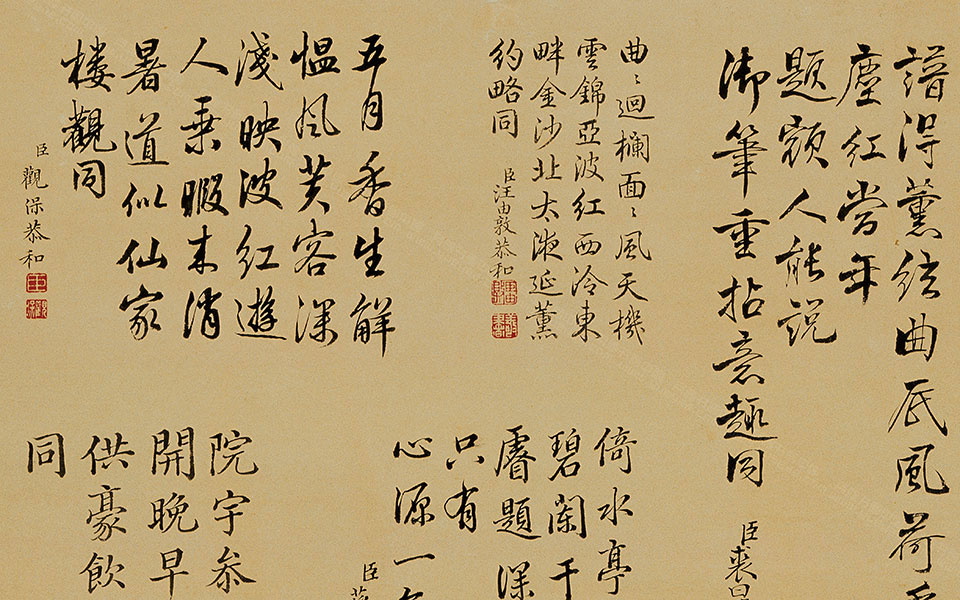 譜得薰絃曲厎風荷
塵紅當年
題額人能說
御筆重拈意趣同
臣裘
曲〻迴欄面〻風天機
雲錦亞波紅西泠東
畔金沙北太液延薰
約略同
臣汪由敦恭和
五月香生解
愠風芙容深
淺映波紅遊
人乗暇来消
暑道似仙家
樓觀同
臣觀保恭和
倚水亭
碧闌干
賡題深
只有
心源一
臣
院宇参
開晚早
供豪飲
同